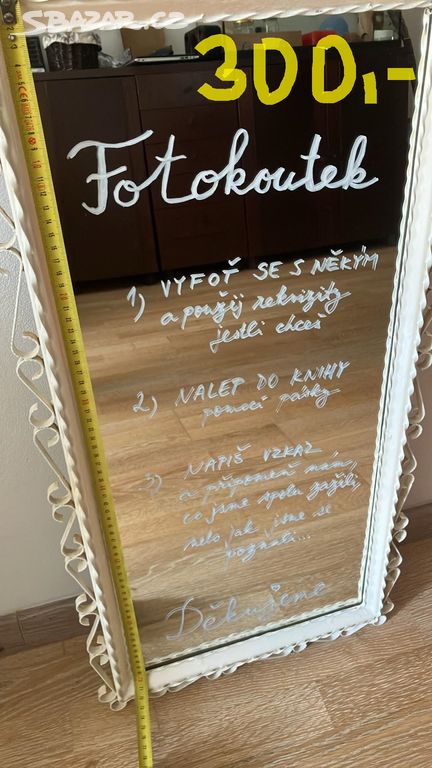 SBAZAR.CZ
300,-
Fotokoutek
1) VYFOŤ SE S NĚKÝM
a použij rekvizity
jestli chceš
2) NALEP DO KNIHY
pomocí pásky
3) NAPIŠ VZKAZ
a připomeň nám,
co jsme spolu zažili,
nebo jak jsme se
poznali...
Děkujeme